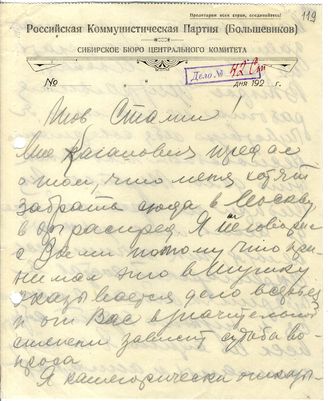 Пролетарии всех стран, соединяйтесь!
119
Российская Коммунистическая Партия (Большевиков)
СИБИРСКОЕ БЮРО ЦЕНТРАЛЬНОГО КОМИТЕТА
№
Дело №
дня 192 г.
Тов Сталин!
Мне Каганович передал
о том, что меня хотят
забрать сюда в Москву
в Я не говорил
с Вами потому что при
нимал это в шутку
оказывается дело всерьез
и от Вас в значительной
степени зависит судьба во
проса
Я категорически отказы-